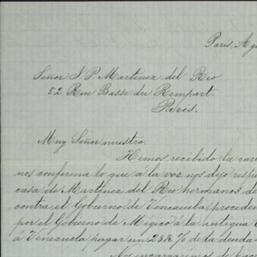 Paris, Ag
Señor J. P. Martinez del Rio
52 Rue Basse du Rempart.
Paris.
Muy Señor nuestro:
Hemos recibido la car
nos confirma lo que á la voz nos dijo resp
casa de Martinez del Rio hermanos d
contra el Gobierno de Venezuela, proceden
por el Gobierno de Mégico á la antigua C
á Venezuela pagar un 28¾ % de la deuda